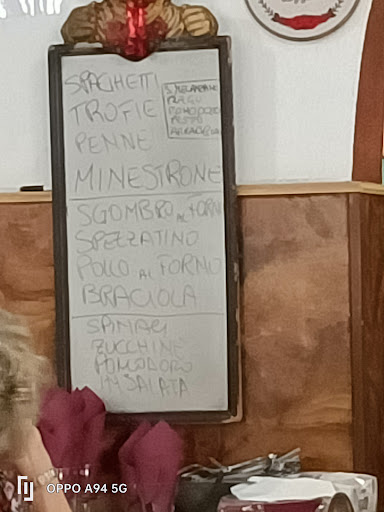 SPAGHETTI
TROFIE
PENNE
RAGU
POMODORO
PESTO
MINESTRONE
SGOMBRO AL FORNO
SPEZZATINO
POLLO AL FORNO
BRACIOLA
SPINACI
ZUCCHINE
POMODORO
INSALATA
OPPO A94 5G